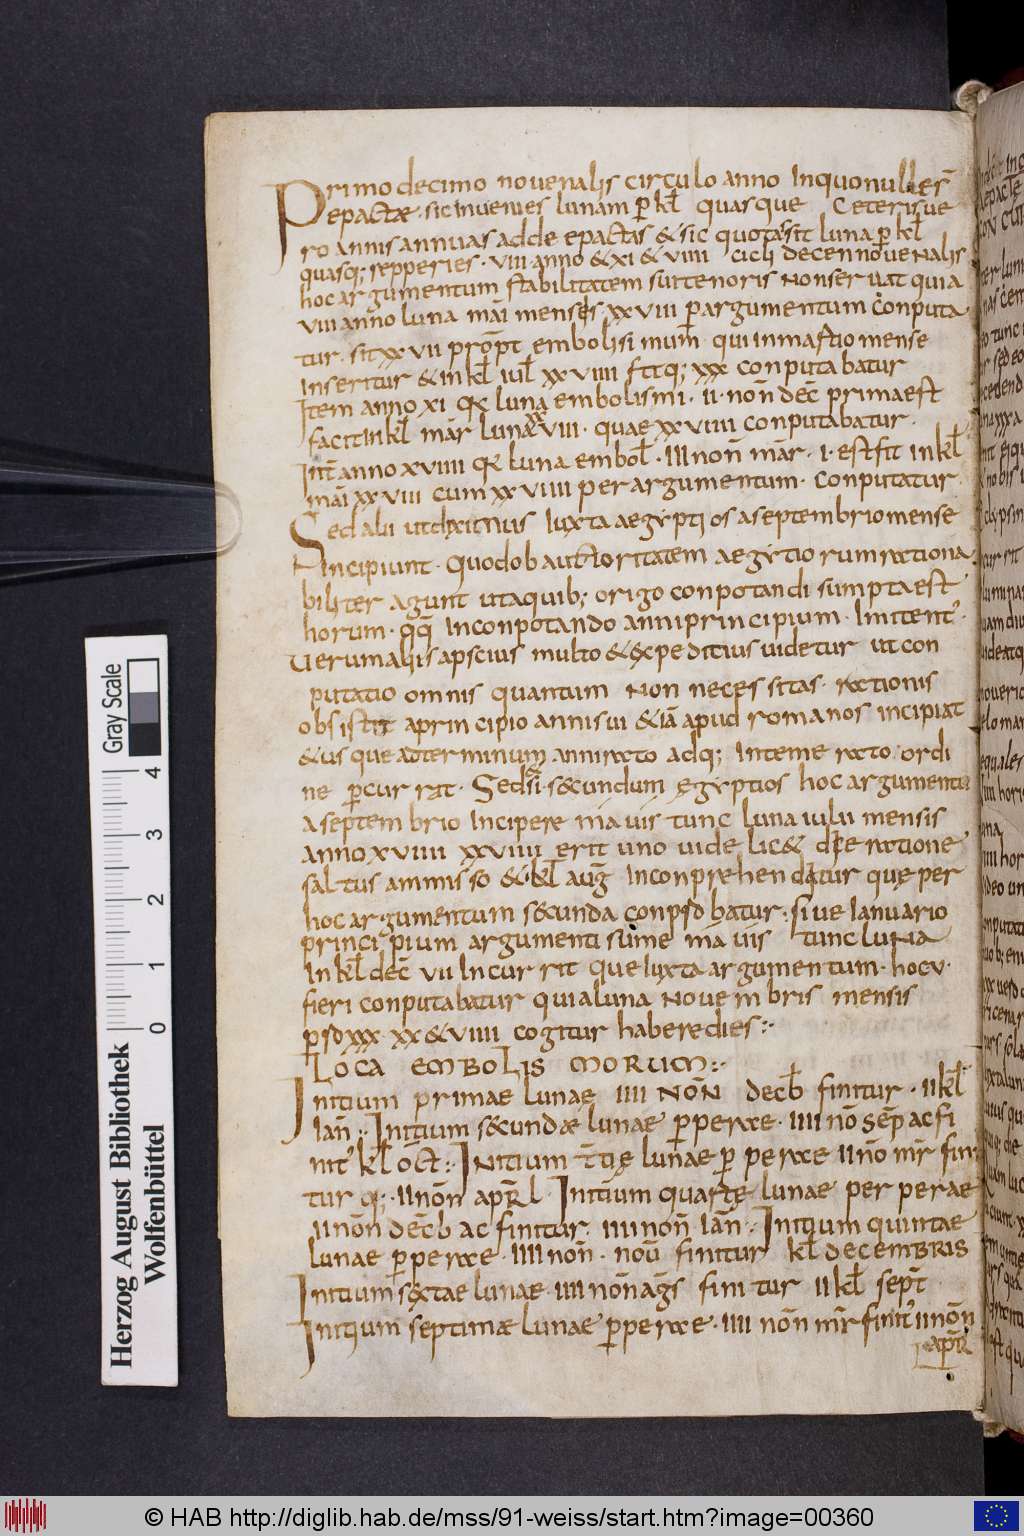 Primo decimo novenalis circulo anno Inquo nulle s̄
epactæ · sic Invenies lunam ꝑ kƚ quasque Ceteris ve
ro annis annuas adde epactas & sic quota sit luna ꝑ kƚ
quasq; repperies · VIII · anno & XI & VIIII cicli decennovenalis
hoc argumentum stabilitatem sui tenoris Non servat quia
VIII anno luna māi menses XXVIII ꝑ argumentum conputa
tur · sit XXVII prōpt embolisimum qui in martio mense
Inseritur & in kƚ iuƚ XXVIIII fitq; XXX conputabatur
Item anno XI luna embolismi · II · noñ dec̄ prima est
facit In kƚ mār luna XXVIII · quae XXVIIII conputabatur ·
Itē anno XVIIII luna emboƚ · III noñ mār · I · est fit in kƚ
māi XXVIII cum XXVIIII per argumentum · conputatur ·
Sed alii ut diximus Iuxta aegyptios a septembrio mense
Incipiunt · quod ob auctoritatem aegytiorum rationa
biliter agunt ut a quib; origo conpotandi sumpta est
horum · qq̄ Inconpotando anni principium · Imitent᾽ ·
Verum aliis apscius multo & expeditius videtur ut con
putatio omnis quantum Non necessitas · rationis
obsistit a principio anni sui & iā apud romanos incipiat
& usque ad terminum anni recto adq; Intemerato ordi
ne ꝑcurrat · Sed si · secundum egyptios hoc argumentū
a septembrio Incipere mavis tunc luna iulii mensis
anno XVIIII XXVIIII erit uno videlic& die ratione
saltus ammisso & kƚ auḡ Inconprehendatur que per
hoc argumentum secunda conpsd batur · sive Ianuario
principium argumenti sume mavis tunc luna
In kƚ dec̄ VII Incurrit que Iuxta argumentum · hoc V ·
fieri conputabatur quia luna Novembris mensis
ꝑ sd XXX · XX & VIIII cogitur habere dies :·
LOCA EMBOLIS MORUM :·
Initium primae lunae IIII NOÑ decb̄ finitur · II kƚ
Iañ :· Initium secundæ lunae ꝑ perae · IIII nō sep̄ ac fi
nit᾽ kƚ oct̄ :· Initium t̄tię lunae ꝑ perae II nō mr̄ fini
tur q; · II noñ apr̄l · Initium quartę lunae per perae
II noñ decb̄ ac finitur · IIII noñ Iañ :· Initium quintae
lunae ꝑ perae · IIII noñ · nov̄ finitur kƚ deceMBRIS
Initium sextae lunae · IIII noñ ag̅s finitur II kƚ sept̄
Initium septimæ lunae ꝑ perae · IIII noñ mr̄ finit᾽ II noñ
apr̄
Gray Scale
0 1 2 3 4
Herzog August Bibliothek
Wolfenbüttel
© HAB http://diglib.hab.de/mss/91-weiss/start.htm?image=00360